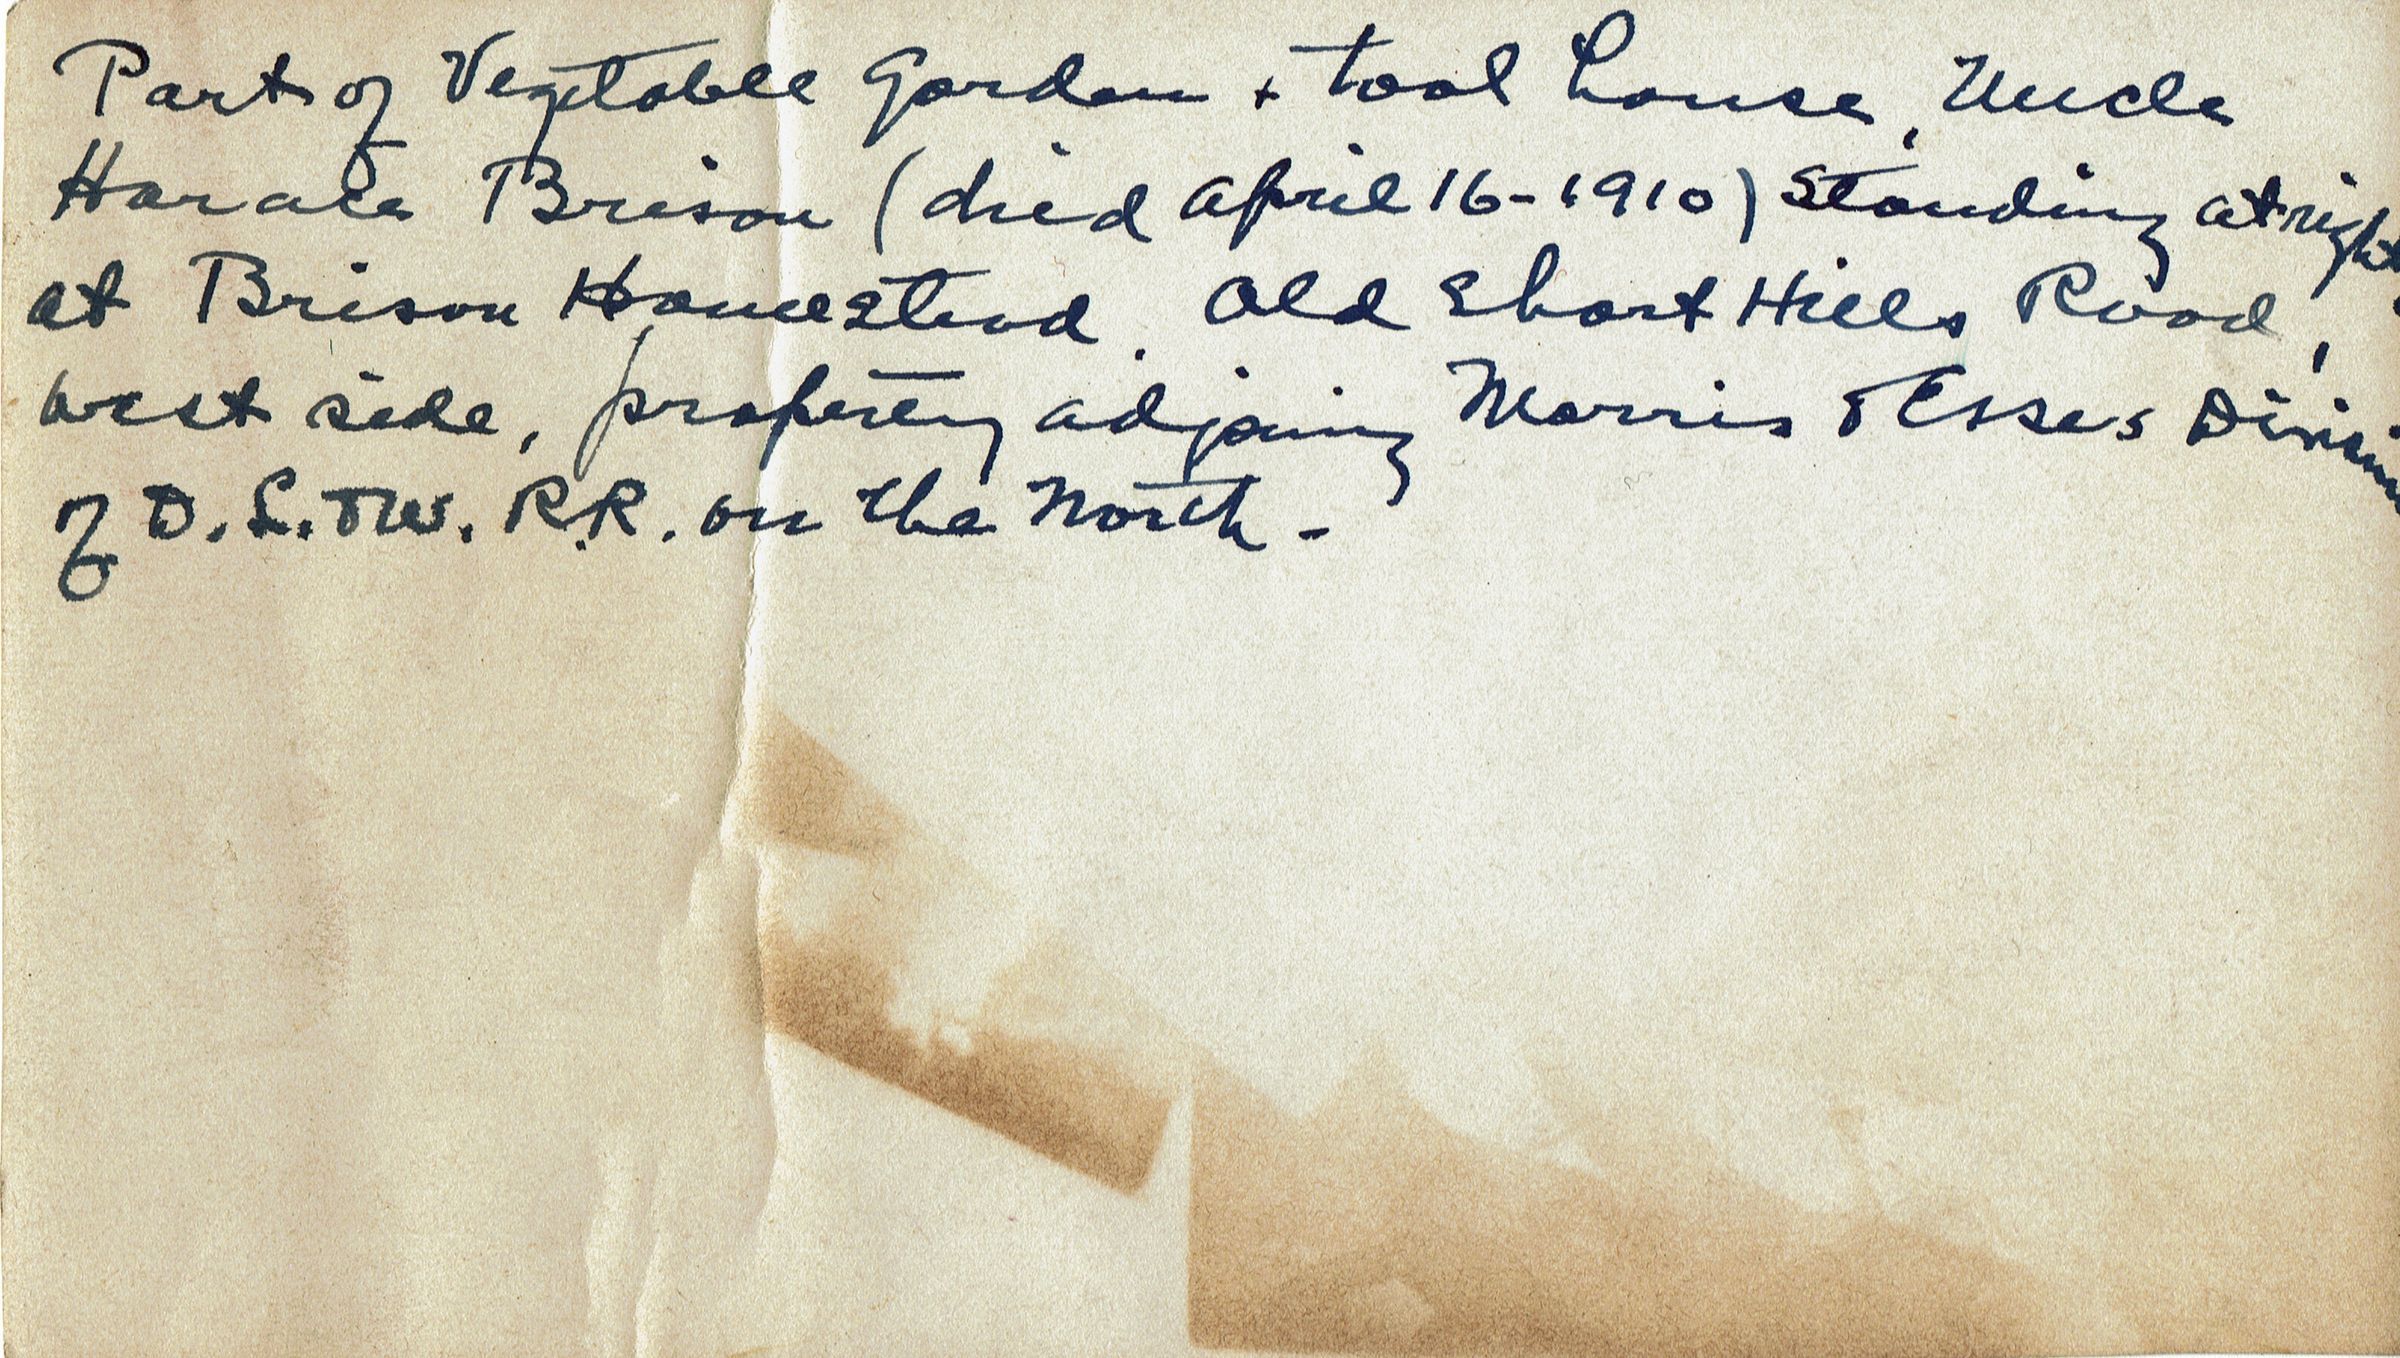 Part of Vegetable Garden + tool house, Uncle
Horace Brison (died April 16-1910) standing at right
at Brison Homestead. Old Short Hills Road,
west side, property adjoining Morris & Essex Division
of D. L. & W. R.R. on the North -